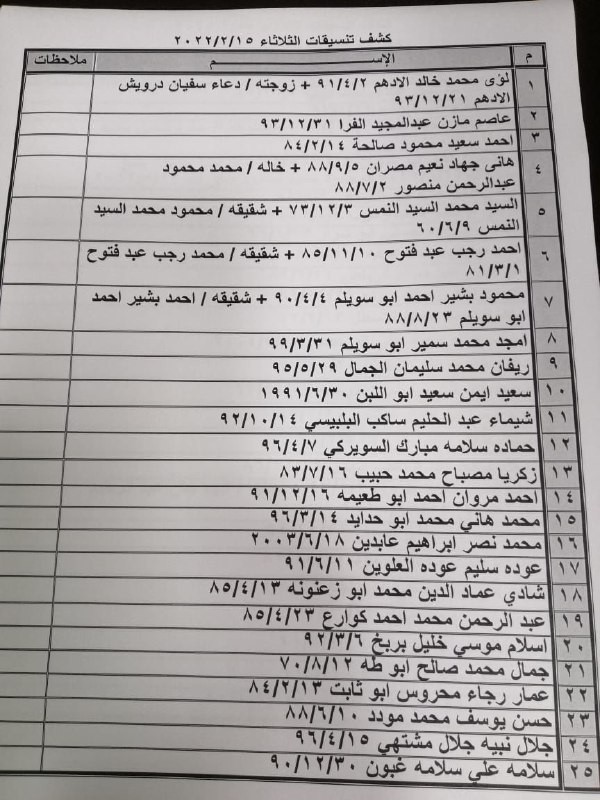 كشف تنسيقات الثلاثاء ٢٠٢٢/٢/١٥
م الإســـــــــــم ملاحظات
١ لؤى محمد خالد الادهم ٩١/٤/٢ + زوجته / دعاء سفيان درويش
الادهم ٩٣/١٢/٢١
٢ عاصم مازن عبدالمجيد الفرا ٩٣/١٢/٣١
٣ احمد سعيد محمود صالحة ٨٤/٢/١٤
٤ هانى جهاد نعيم مصران ٨٨/٩/٥ + خاله / محمد محمود
عبدالرحمن منصور ٨٨/٧/٢
٥ السيد محمد السيد النمس ٧٣/١٢/٣ + شقيقه / محمود محمد السيد
النمس ٦٠/٦/٩
٦ احمد رجب عبد فتوح ٨٥/١١/١٠ + شقيقه / محمد رجب عبد فتوح
٨١/٣/١
٧ محمود بشير احمد ابو سويلم ٩٠/٤/٤ + شقيقه / احمد بشير احمد
ابو سويلم ٨٨/٨/٢٣
٨ امجد محمد سمير ابو سويلم ٩٩/٣/٣١
٩ ريفان محمد سليمان الجمال ٩٥/٥/٢٩
١٠ سعيد ايمن سعيد ابو اللبن ١٩٩١/٦/٣٠
١١ شيماء عبد الحليم ساكب البلبيسي ٩٢/١٠/١٤
١٢ حماده سلامه مبارك السويركي ٩٦/٤/٧
١٣ زكريا مصباح محمد حبيب ٨٣/٧/١٦
١٤ احمد مروان احمد ابو طعيمه ٩١/١٢/١٦
١٥ محمد هاني محمد ابو حدايد ٩٦/٣/١٤
١٦ محمد نصر ابراهيم عابدين ٢٠٠٣/٦/١٨
١٧ عوده سليم عوده العلوين ٩١/٦/١١
١٨ شادي عماد الدين محمد ابو زعنونه ٨٥/٤/١٣
١٩ عبد الرحمن محمد احمد كوارع ٨٥/٤/٢٣
٢٠ اسلام موسي خليل بريخ ٩٢/٣/٦
٢١ جمال محمد صالح ابو طه ٧٠/٨/١٢
٢٢ عمار رجاء محروس ابو ثابت ٨٤/٢/١٣
٢٣ حسن يوسف محمد مودد ٨٨/٦/١٠
٢٤ جلال نبيه جلال مشتهي ٩٦/٤/١٥
٢٥ سلامه علي سلامه غبون ٩٠/١٢/٣٠